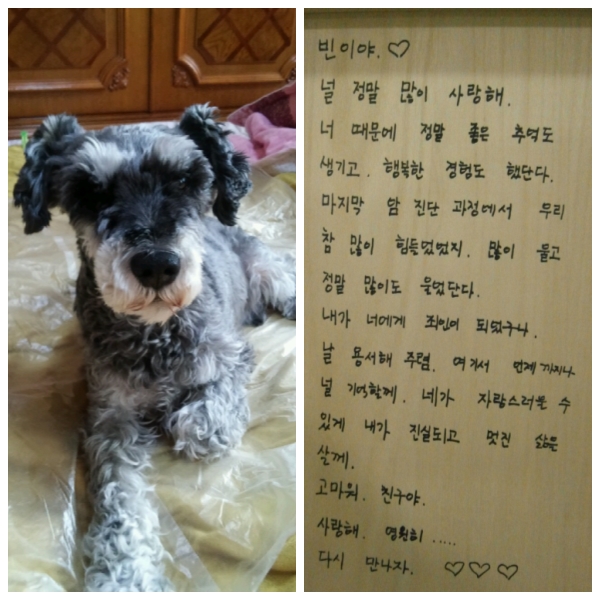 빈이야. ♡
널 정말 많이 사랑해.
너 때문에 정말 좋은 추억도
생기고. 행복한 경험도 했단다.
마지막 암 진단 과정에서 우리
참 많이 힘든었었지. 많이 울고
정말 많이도 울었단다.
내가 너에게 죄인이 되었구나.
날 용서해 주렴. 여기서 언제까지나
널 기억할께. 네가 자랑스러울 수
있게 내가 진실되고 멋진 삶은
살께.
고마워. 친구야.
사랑해. 영원히 .....
다시 만나자. ♡♡♡